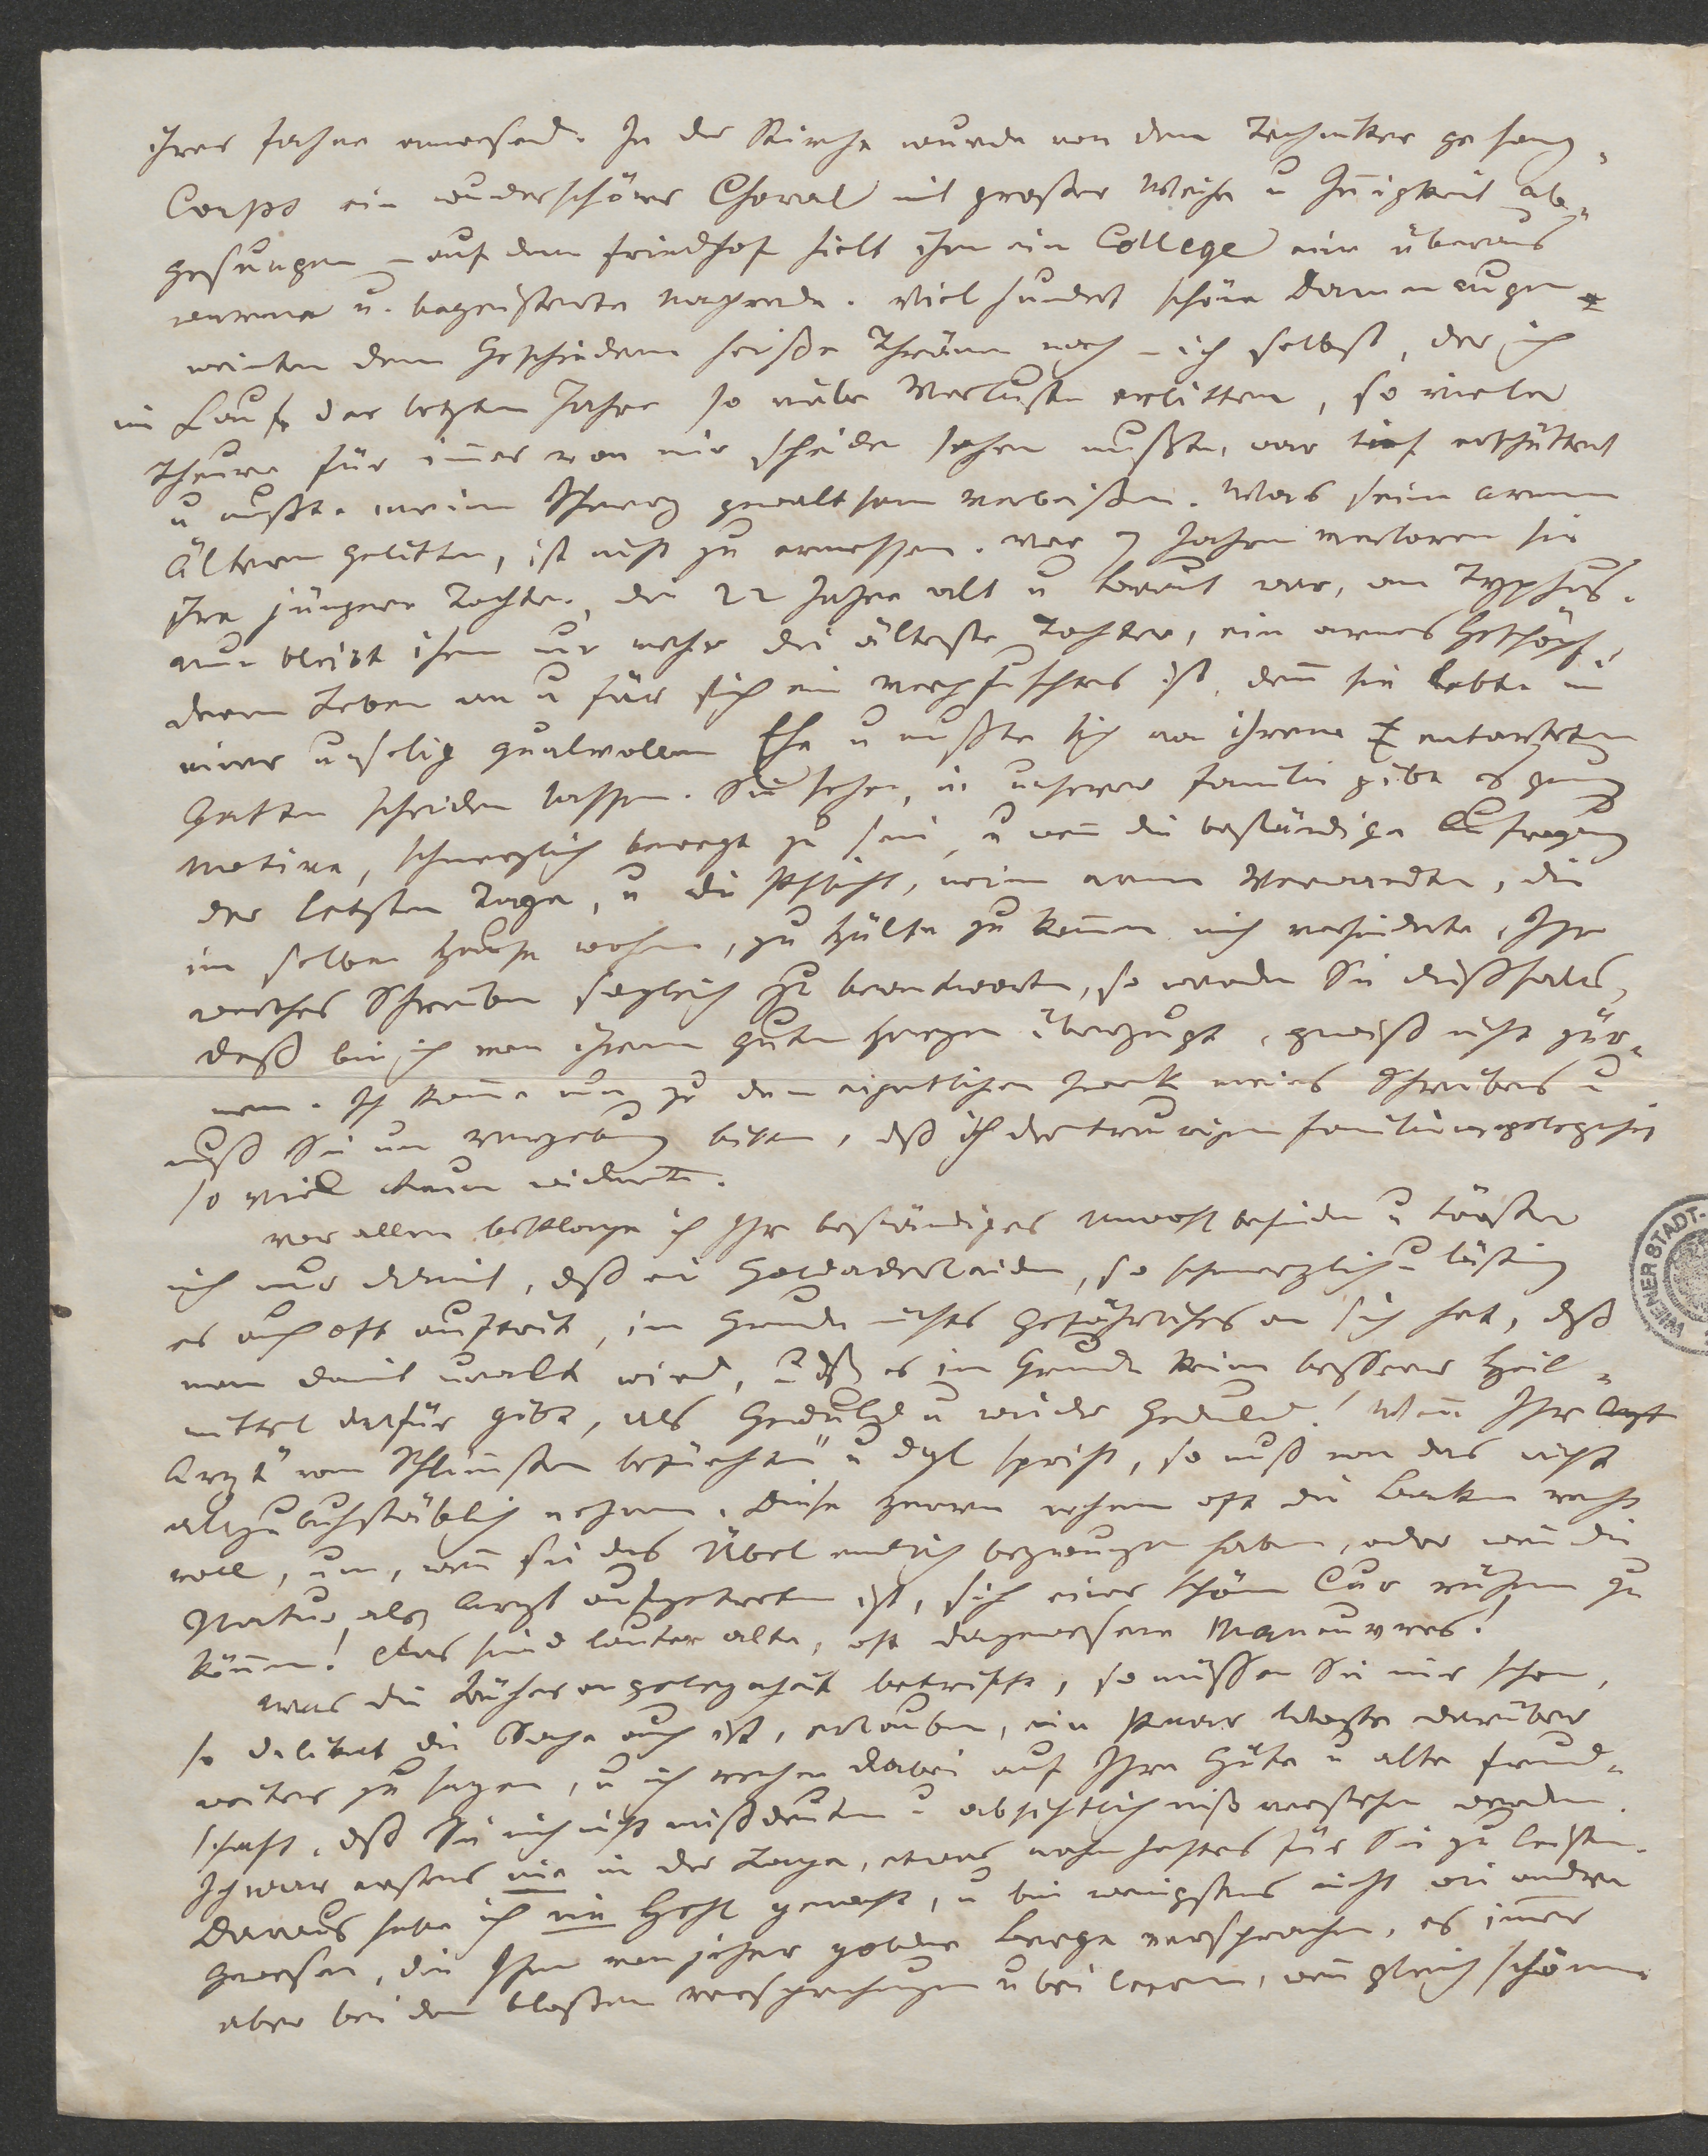 ihrer Fahne anwesend. In der Kirche wurde von dem Techniker gesang-
Corps ein wunderschöner Choral mit großer Weihe u Iñigkeit ab-
gesungen – auf dem Friedhof hielt ihm ein College eine überaus
warme u. begeisterte Nachrede. Viel hundert schöne Damenaugen
weinten dem Geschiedenen heiße Thränen nach – ich selbst, der ich
im Laufe der letzten Jahre so viele Verluste erlitten, so viele
Theure für im̃er von mir scheiden sehen mußte, war tief erschüttert
u mußte meinen Schmerz gewaltsam verbeißen. Was seine armen
Ältern gelitten, ist nicht zu ermessen. Vor 7 Jahren verloren sie
ihre jüngere Tochter, die 22 Jahre alt u Braut war, am Typhus.
Nun bleibt ihnen nur mehr die älteste Tochter, ein armes Geschöpf,
deren Leben an u für sich ein verpfuschtes ist, den̄ sie lebte in
einer unselig qualvollen Ehe u mußte sich von ihrem entarteten
Gatten scheiden lassen. Sie sehen, in unserer Familie gibt es genug
Motive, schmerzlich bewegt zu sein, u wen̄ die beständige Aufregung
der letzten Tage, u die Pflicht, meinen armen Verwandten, die
im selben Hause wohnen, zu Hülfe zu kom̃en mich verhinderte, Ihr
werthes Schreiben sogleich zu beantworten, so werden Sie dießfalls,
deß bin ich von ihrem guten Herzen überzeugt, gewiß nicht zür-
nen. Ich kom̃e nun zu dem eigentlichen Zweck meines Schreibens u
muß Sie um Vergebung bitten, dß ich der traurigen Familienangelegenheit
so viel Raum widmete.
Vor allem beklage ich Ihr beständiges Unwohlbefinden u tröste
mich nur damit, dß ein Goldaderleiden, so schmerzlich u lästig
es auch oft auftrit, im Grunde nichts Gefährliches an sich hat, dß
man damit uralt wird, u dß es im Grunde kein besseres Heil-
mittel dafür gibt, als Geduld u wieder Geduld! Wen̄ Ihr
Arzt "vom Schlim̃sten befürchten" u dgl spricht, so muß man das nicht
allzu buchstäblich nehmen. Diese Herren nehmen oft die Backen recht
voll, um, wen̄ sie das Übel endlich bezwungen haben, oder wen̄ die
Natur als Arzt aufgetreten ist, sich einer schönen Cur rühmen zu
kön̄en! Das sind lauter alte, oft dagewesene Maneuvres!
Was die Bücherangelegenheit betrifft, so müssen Sie mir schon,
so delikat die Sache auch ist, erlauben, ein Paar Worte darüber
weiter zu sagen, u ich rechne dabei auf Ihre Güte u alte Freund-
schaft, dß Sie mich nicht mißdeuten u absichtlich mißverstehen werden.
Ich war erstens nie in der Lage, etwas namhaftes für Sie zu leisten.
Daraus habe ich nie Hehl gemacht, u bin wenigstens nicht wie andre
gewesen, die Ihnen von jeher goldne Berge versprachen, es im̃er
aber bei den bloßen Versprechungen u bei leeren, wen̄ gleich schönen
WIENER STADT-